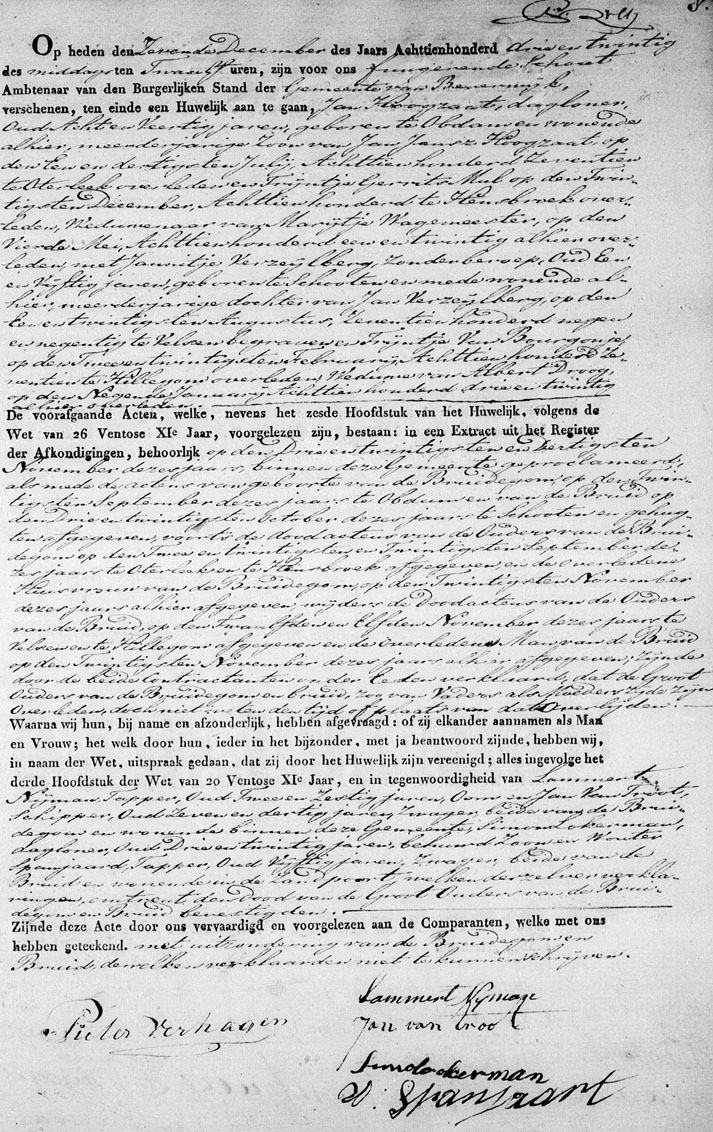 Op heden den Zevende December des Jaars Achttienhonderd drie en twintig
des middags ten Twaalf uren, zijn voor ons fungerende Schout
Ambtenaar van den Burgerlijken Stand der Gemeente van Beverwijk,
verschenen, ten einde een Huwelijk aan te gaan, Jan Hoogzaat, dagloner,
Oud Acht en Veertig jaren, geboren te Obdam en wonende
alhier, meerderjarige Zoon van Jan Jansz Hoogzaat, op
den Een en dertigsten Julij, Achttien honderd Zeventien
te Oterleek overleden en Trijntje Gerrits Mul op den Twin-
tigsten December, Achttien honderd te Hensbroek over-
leden, Weduwenaar van Marijtje Wagemeester, op den
Vierde Mei, Achttien honderd een en twintig alhier over-
leden, met Jannitje Verzeijlberg, Zonder beroep, Oud Een
en Vijftig jaren, geboren te Schooten en mede wonende al-
hier, meerderjarige dochter van Jan Verzeijlberg, op den
Een en twintigsten Augustus, Zeventien honderd negen
en negentig te Velsen begraven en Trijntje Van Bourgonje,
op den Twee en twintigsten Februarij, Achttien honderd Ze-
ventien te Hillegom overleden, Weduwe van Albert Droog,
op den Negende Januarij Achttien honderd drie en twintig
alhier overleden
De voorafgaande Acten, welke, nevens het zesde Hoofdstuk van het Huwelijk, volgens de
Wet van 26 Ventose XIe Jaar, voorgelezen zijn, bestaan: in een Extract uit het Register
der Afkondigingen, behoorlijk op den Drie en twintigsten en Dertigsten
November dezes jaars, binnen deze Gemeente geproclameerd,
als mede de actens van geboorte van de Bruidegom, op den Twin-
tigsten September dezes jaars te Obdam en van de Bruid op
den Drie en twintigsten October dezes jaars te Schooten en gehug-
ten afgegeven, voorts de doodactens van de Ouders van de Brui-
degom op den Twee en twintigsten, en Twintigsten September de-
zes jaars te Oterleek en te Hensbroek afgegeven, en de overledene
Huisvrouw van de Bruidegom, op den Twintigsten November
dezes jaars alhier afgegeven, wijders de Doodactens van de Ouders
van de Bruid, op den Twaalfden en Elfden November dezes jaars te
Velsen en te Hillegom afgegeven en de overledene Man van de Bruid
op den Twintigsten November dezes jaars alhier afgegeven; zijnde
door de beide Contractanten onder Eeden verklaard, dat de Groot
Ouders van de Bruidegom en bruid, zoo van Vaders als Moeders zijde zijn
Overleden, doch niet weten den tijd of plaats van dat Overlijden.
Waarna wij hun, bij name en afzonderlijk, hebben afgevraagd: of zij elkander aannamen als Man
en Vrouw; het welk door hun, ieder in het bijzonder, met ja beantwoord zijnde, hebben wij,
in naam der Wet, uitspraak gedaan, dat zij door het Huwelijk zijn vereenigd; alles ingevolge het
derde Hoofdstuk der Wet van 20 Ventose XIe Jaar, en in tegenwoordigheid van Lammert
Nijman, Tapper, Oud Twee en Zestig jaren, Oom en Jan Van Troot,
Schipper, Oud Zeven en dertig jaren, Zwager, beide van de Brui-
degom en wonende binnen deze Gemeente, Simon Lokerman,
dagloner, Oud Drie en twintig jaren, behuwd Zoon en Wouter
Spanjaard, Tapper, Oud Vijftig jaren, Zwager, beide van de
Bruid en wonende in de Zandpoort, welken derzelver verkla-
ringen, omtrent den dood van de Groot Ouders van de Brui-
degom en Bruid bevestigden.
Zijnde deze Acte door ons vervaardigd en voorgelezen aan de Comparanten, welke met ons
hebben geteekend. met uitzondering van de Bruidegom en
Bruid, dewelken verklaarden niet te kunnen schrijven.
Lammert Nijman
Pieter Verhagen
Jan van troot
W. Spanjaart